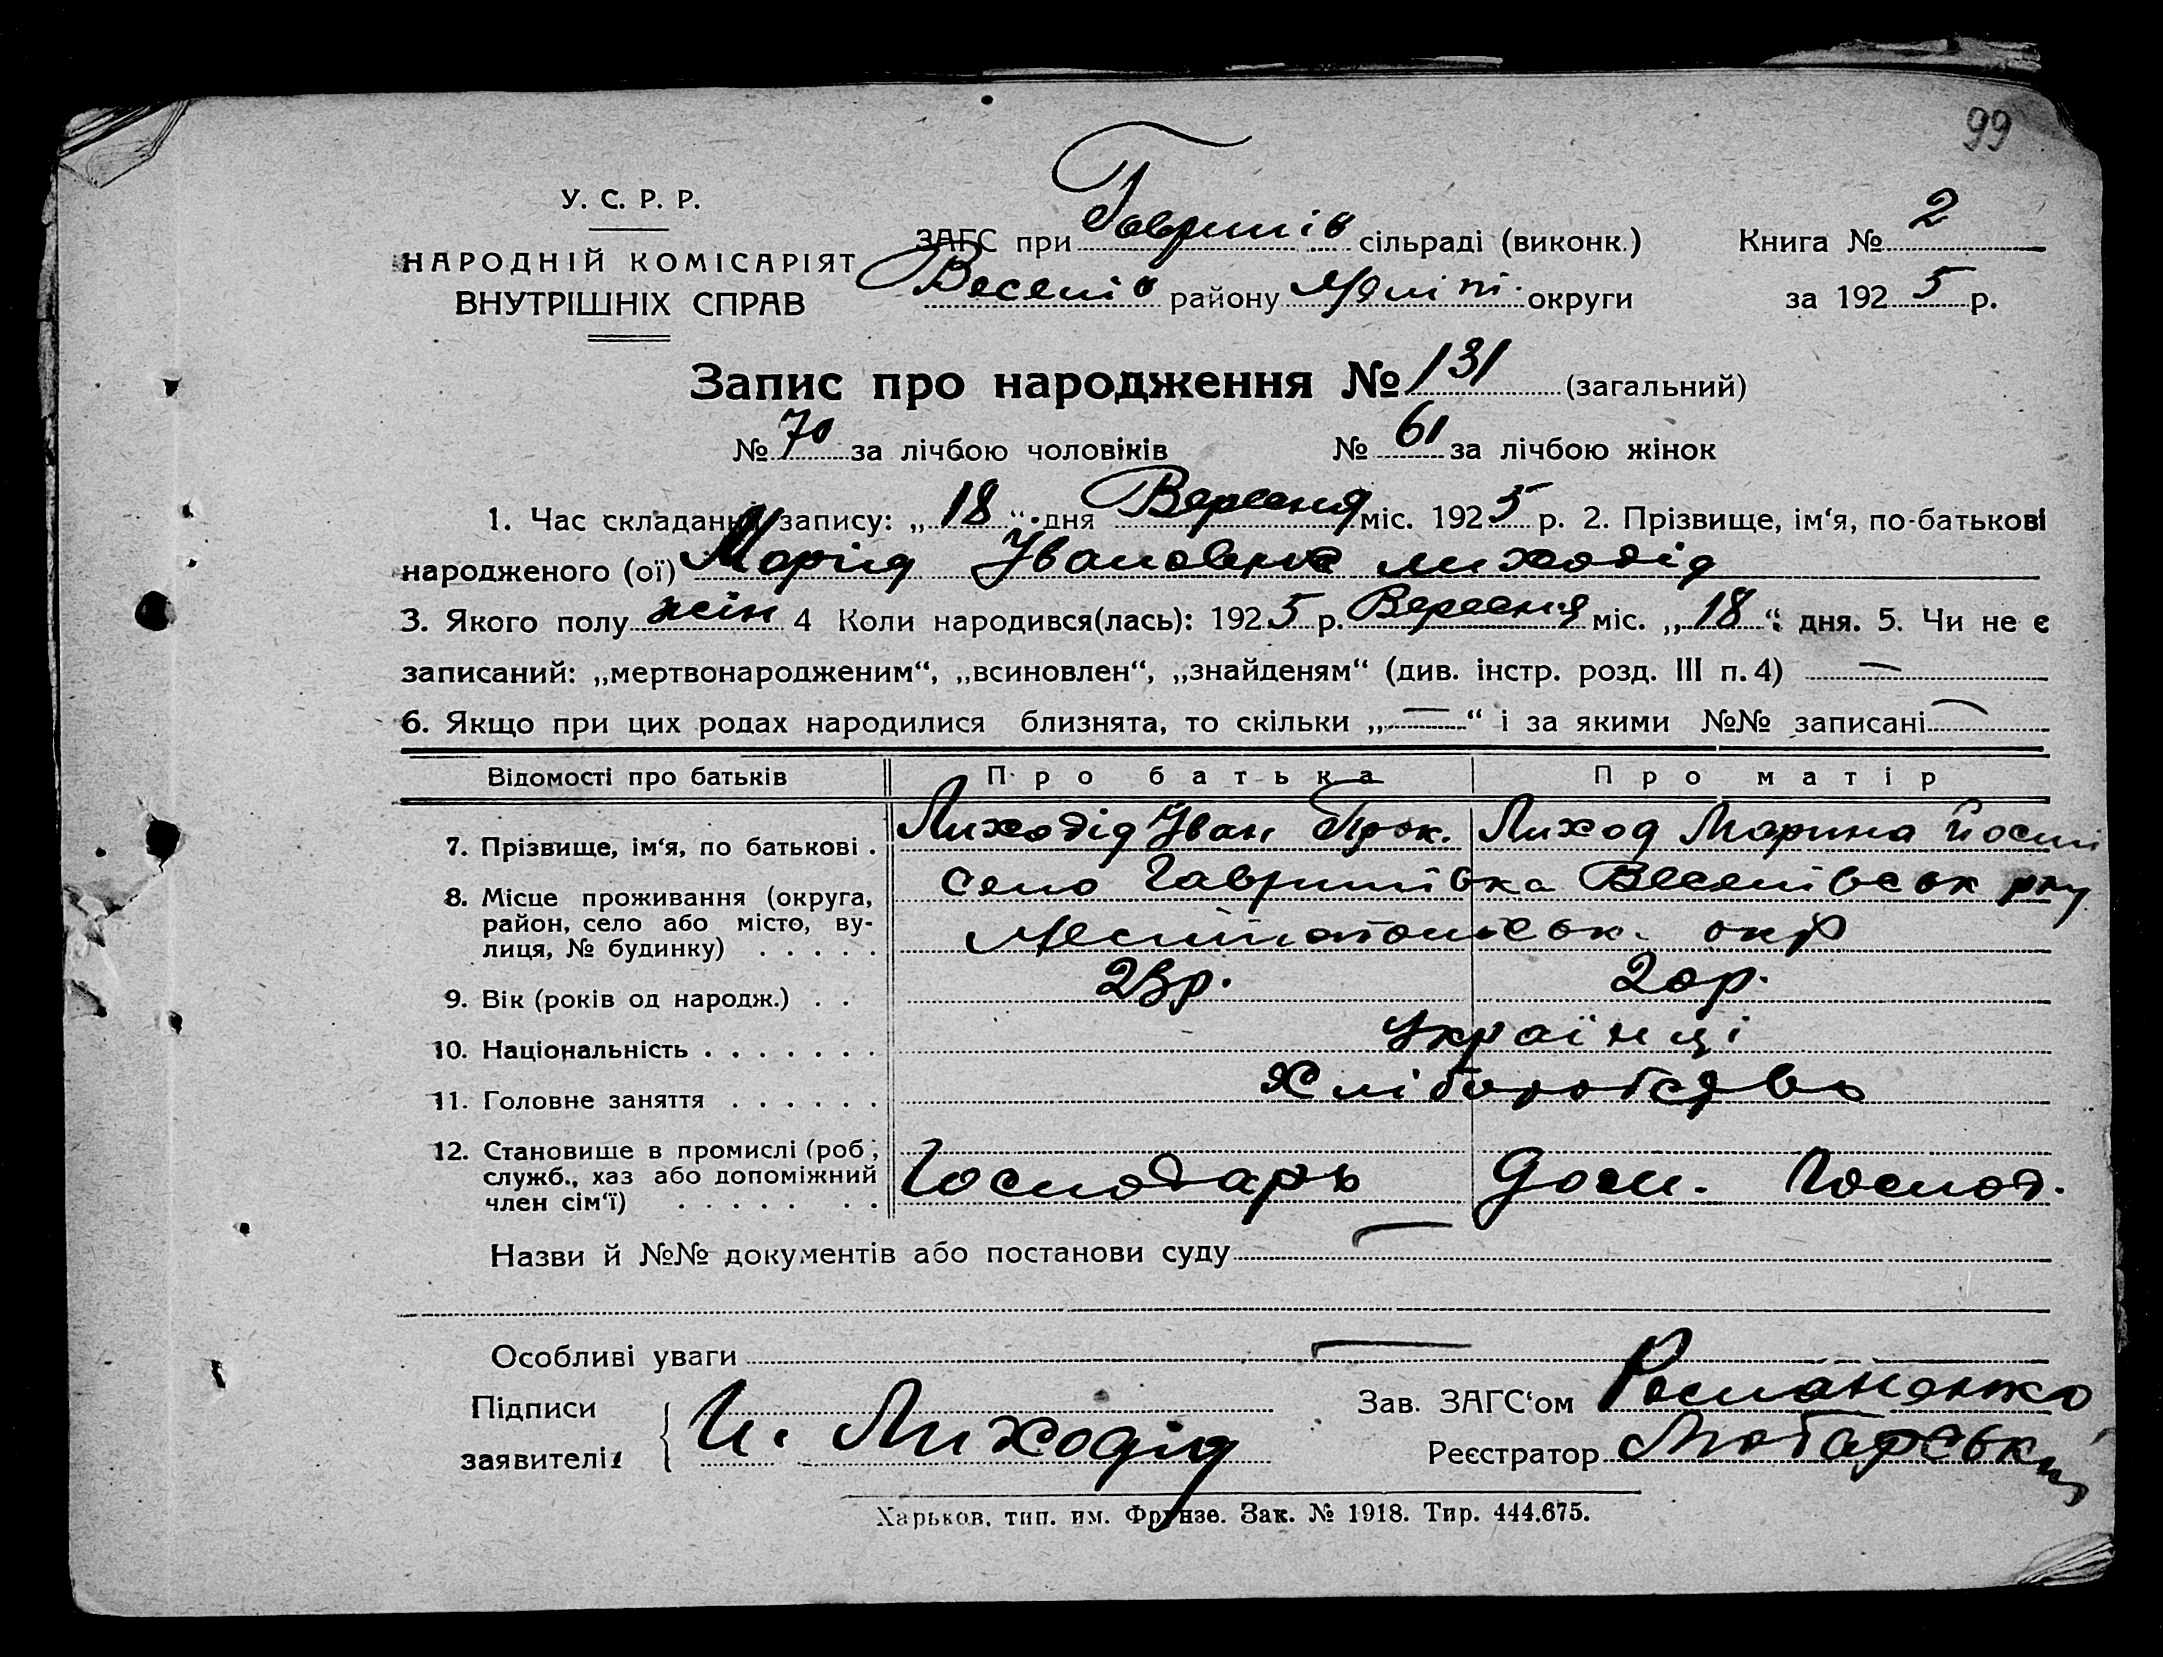 99
У. С. Р. Р.
НАРОДНІЙ КОМІСАРІЯТ
ВНУТРІШНІХ СПРАВ
ЗАГС при Гаврилів сільраді (виконк.) Книга № 2
Веселів району Меліт. округи за 1925 р.
Запис про народження № 131 (загальний)
№ 70 за лічбою чоловіків № 61 за лічбою жінок
1. Час складання запису: „ 18 “ дня Вересня міс. 1925 р. 2. Прізвище, ім‘я, по-батькові
народженого (ої) Марія Івановна Лиходід
3. Якого полу жін 4 Коли народився(лась): 1925 р. Вересня міс. „ 18 “ дня. 5. Чи не є
записаний: „мертвонародженим“, „всиновлен“, „знайденям“ (див. інстр. розд. III п. 4) —
6. Якщо при цих родах народилися близнята, то скільки „ — “ і за якими №№ записані —
Відомості про батьків Про батька Про матір
7. Прізвище, ім‘я, по батькові . Лиходід Іван Прок. Лиход Марина Йосип
8. Місце проживання (округа, район, село або місто, вулиця, № будинку) . . . . . село Гаврилівка Веселівськ рну
Мелітопольськ. окр
9. Вік (років од народж.) . . 23р. 20р.
10. Національність . . . . . . . Українці
11. Головне заняття . . . . . . Хліборобство
12. Становище в промислі (роб, служб., хаз або допоміжний член сім‘ї) . . . . . . . Господарь Дом. Господ.
Назви й №№ документів або постанови суду —
Особливі уваги —
Підписи заявителів И. Лиходід
Зав. ЗАГС‘ом Романенко
Реєстратор
Харьков, тип. им. Фрунзе. Зак. № 1918. Тир. 444.675.